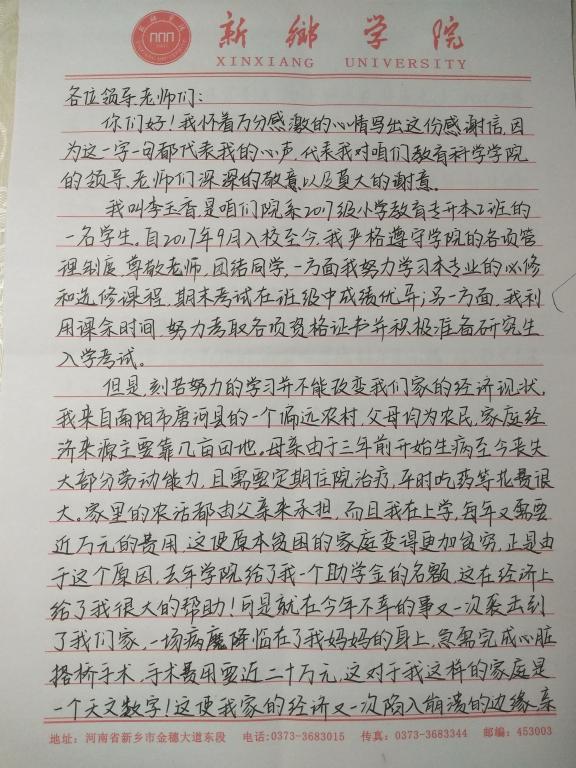 新鄉学院
XINXIANG UNIVERSITY
各位领导、老师们：
你们好！我怀着万分感激的心情写出这份感谢信，因
为这一字一句都代表我的心声，代表我对咱们教育科学学院
的领导、老师们深深的敬意以及莫大的谢意。
我叫李玉香是咱们院系2017级小学教育专升本2班的
一名学生。自2017年9月入校至今，我严格遵守学院的各项管
理制度，尊敬老师，团结同学，一方面我努力学习本专业的必修
和选修课程，期末考试在班级中成绩优异；另一方面，我利
用课余时间，努力考取各项资格证书并积极准备研究生
入学考试。
但是，刻苦努力的学习并不能改变我们家的经济现状，
我来自南阳市唐河县的一个偏远农村，父母均为农民，家庭经
济来源主要靠几亩田地。母亲由于三年前开始生病至今丧失
大部分劳动能力，且需要定期住院治疗，平时吃药等花费很
大。家里的农活都由父亲来承担，而且我在上学，每年又需要
近万元的费用，这使原本贫困的家庭变得更加贫穷，正是由
于这个原因，去年学院给了我一个助学金的名额，这在经济上
给了我很大的帮助！可是就在今年不幸的事又一次袭击到
了我们家，一场病魔降临在了我妈妈的身上，急需完成心脏
搭桥手术，手术费用要近二十万元，这对于我这样的家庭是
一个天文数字！这使我家的经济又一次陷入崩溃的边缘，亲
地址：河南省新乡市金穗大道东段 电话：0373-3683015 传真：0373-3683344 邮编：453003